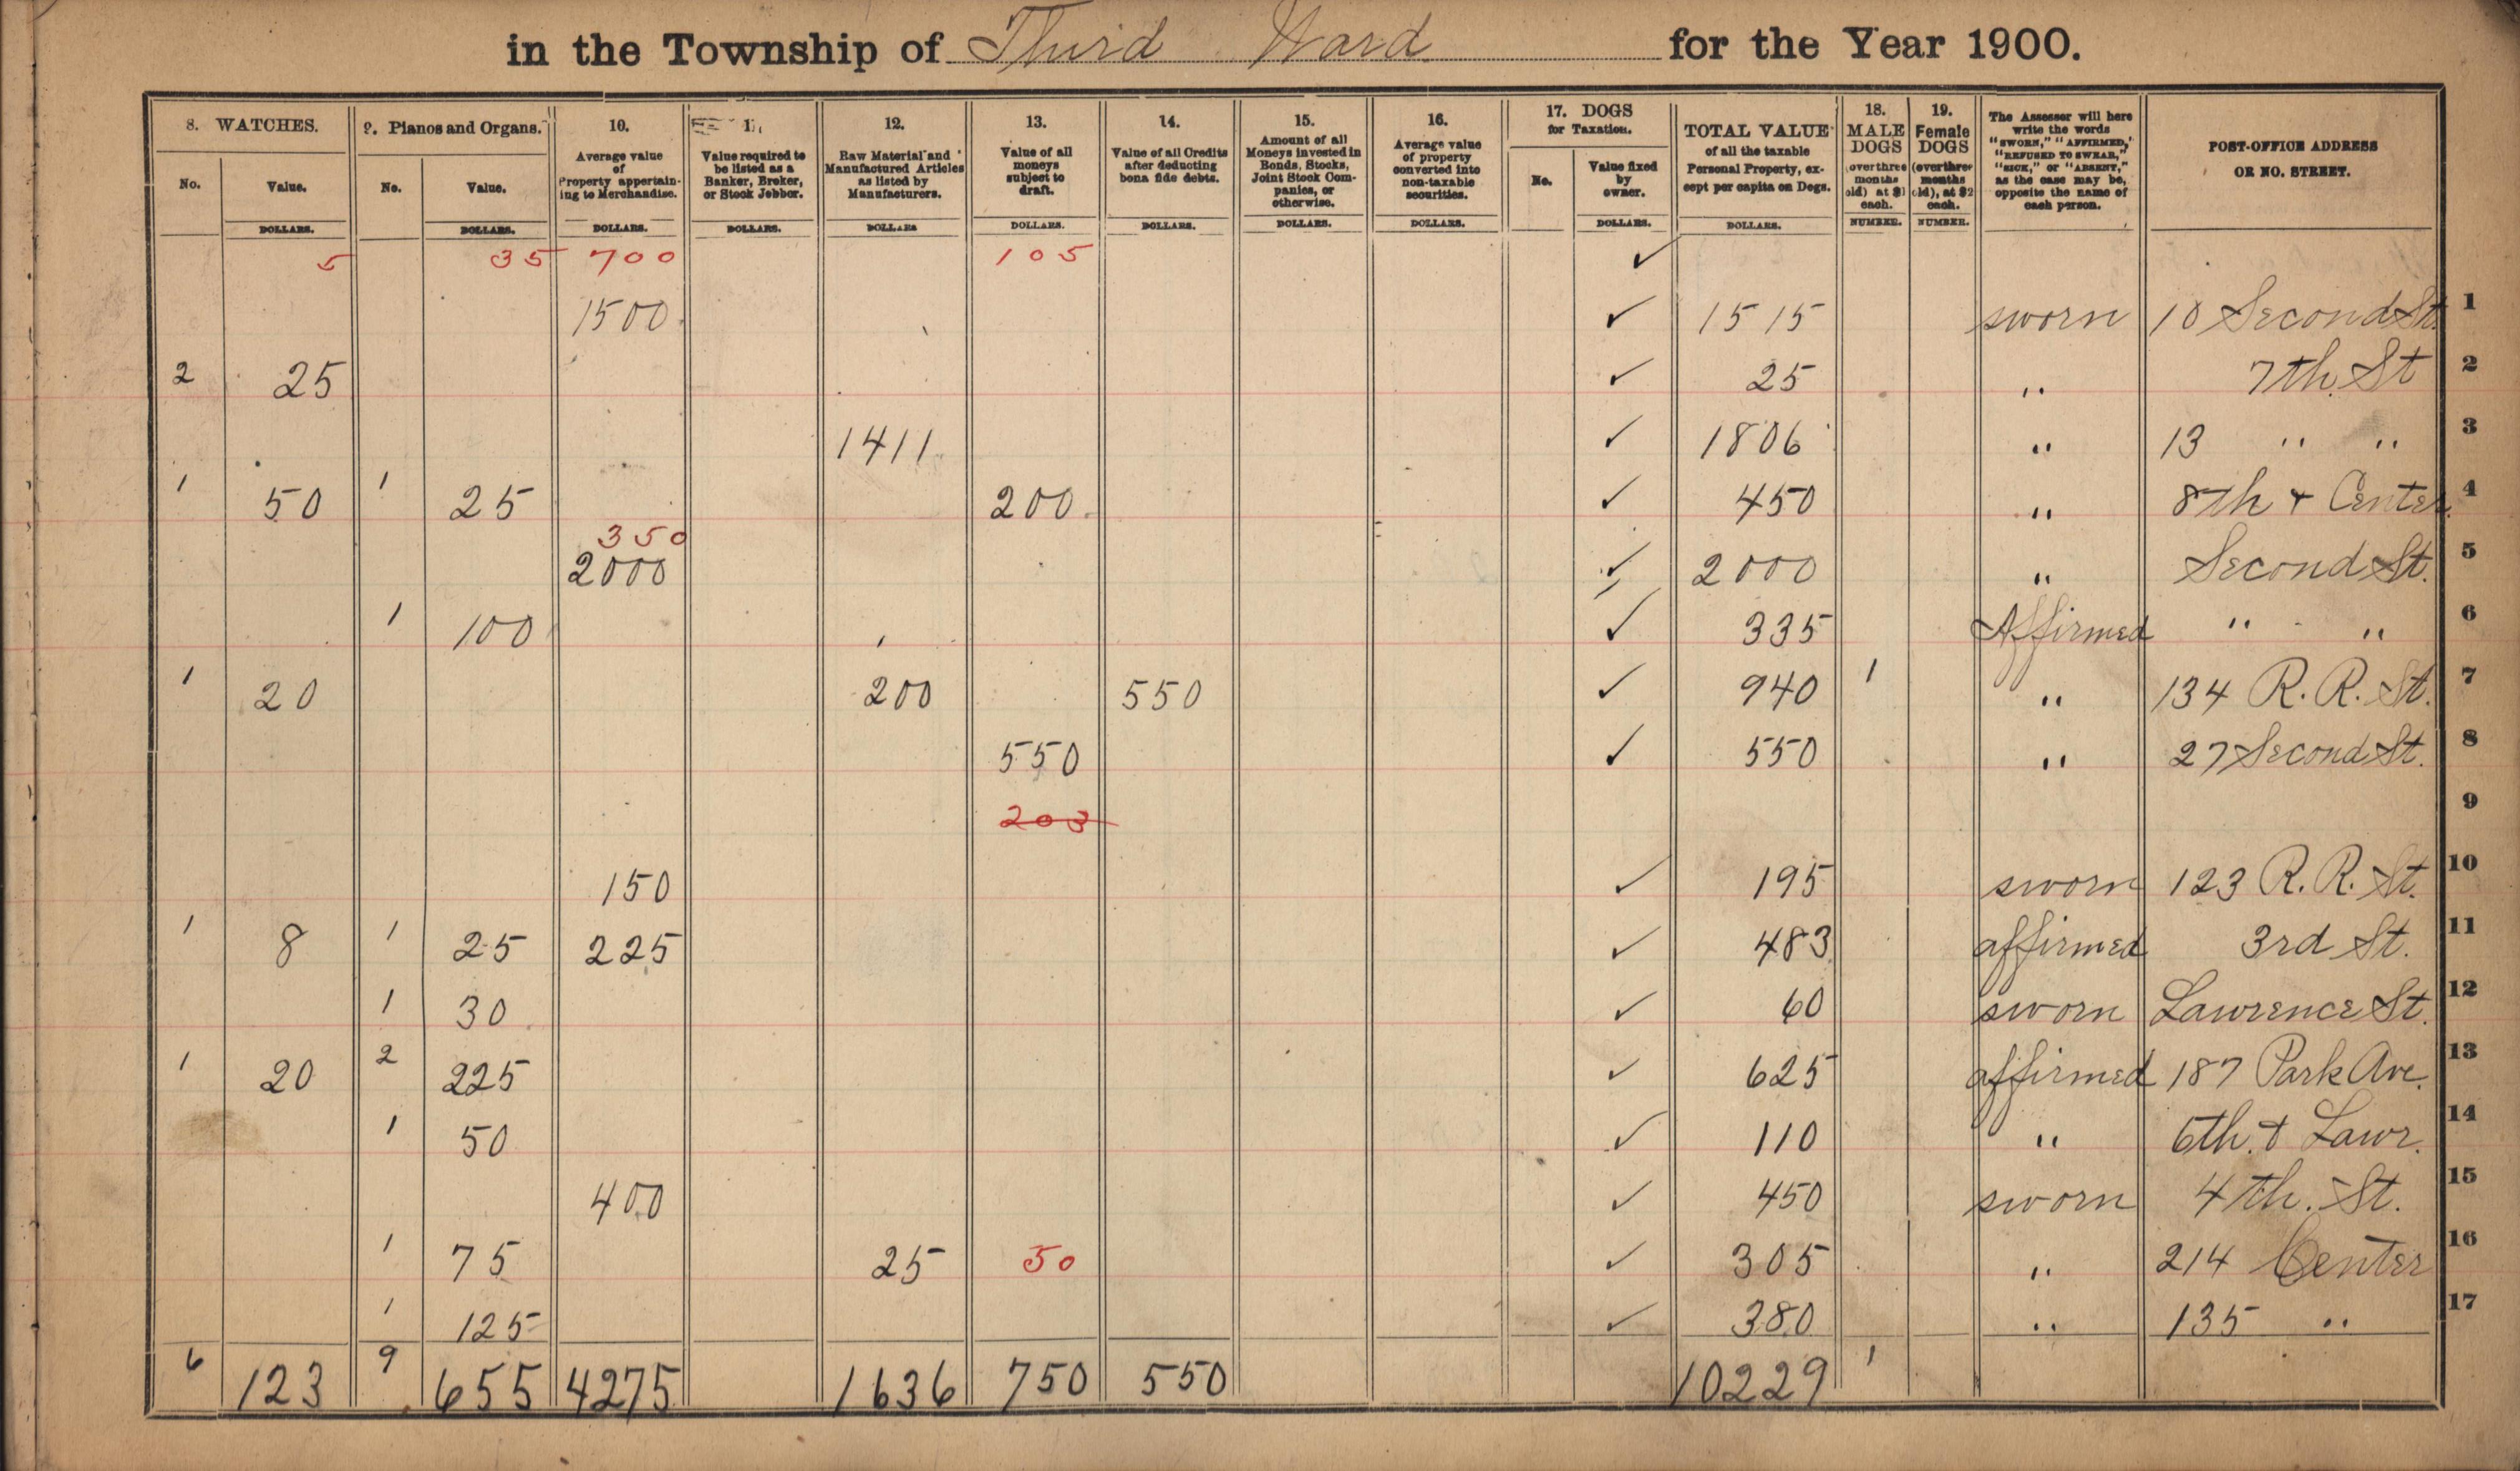 in the Township of Third Ward for the Year 1900.
8. WATCHES. 9. Pianos and Organs. 10. Average value of Property appertaining to Merchandise. 11. Value required to be listed as a Banker, Broker, or Stock Jobber. 12. Raw Material and Manufactured Articles as listed by Manufacturers. 13. Value of all moneys subject to draft. 14. Value of all Credits after deducting bona fide debts. 15. Amount of all Moneys invested in Bonds, Stocks, Joint Stock Companies, or otherwise. 16. Average value of property converted into non-taxable securities. 17. DOGS for Taxation. TOTAL VALUE of all the taxable Personal Property, except per capita on Dogs. 18. MALE DOGS (over three months old) at $1 each. 19. Female DOGS (over three months old), at $2 each. The Assessor will here write the words "SWORN," "AFFIRMED," "REFUSED TO SWEAR," "SICK," or "ABSENT," as the case may be, opposite the name of each person. POST-OFFICE ADDRESS OR NO. STREET.
No. Value. No. Value. No. Value fixed by owner.
DOLLARS. DOLLARS. DOLLARS. DOLLARS. DOLLARS DOLLARS. DOLLARS. DOLLARS. DOLLARS. DOLLARS. DOLLARS. NUMBER. NUMBER.
5 35 700 105 ✓
1500 ✓ 1515 sworn 10 Second St. 1
2 25 ✓ 25 " 7th St 2
1411 ✓ 1806 " 13 " " 3
1 50 1 25 200 ✓ 450 " 8th + Center 4
350
2000 ✓ 2000 " Second St. 5
1 100 ✓ 335 Affirmed " " 6
1 20 200 550 ✓ 940 1 " 134 R. R. St. 7
550 ✓ 550 " 27 Second St. 8
203 9
150 ✓ 195 sworn 123 R. R. St. 10
1 8 1 25 225 ✓ 483 affirmed 3rd St. 11
1 30 ✓ 60 sworn Lawrence St. 12
1 20 2 225 ✓ 625 affirmed 187 Park Ave. 13
1 50 ✓ 110 " 6th. + Lawr. 14
400 ✓ 450 sworn 4th. St. 15
1 75 25 50 ✓ 305 " 214 Center 16
1 125 ✓ 380 " 135 " 17
6 123 9 655 4275 1636 750 550 10229 1